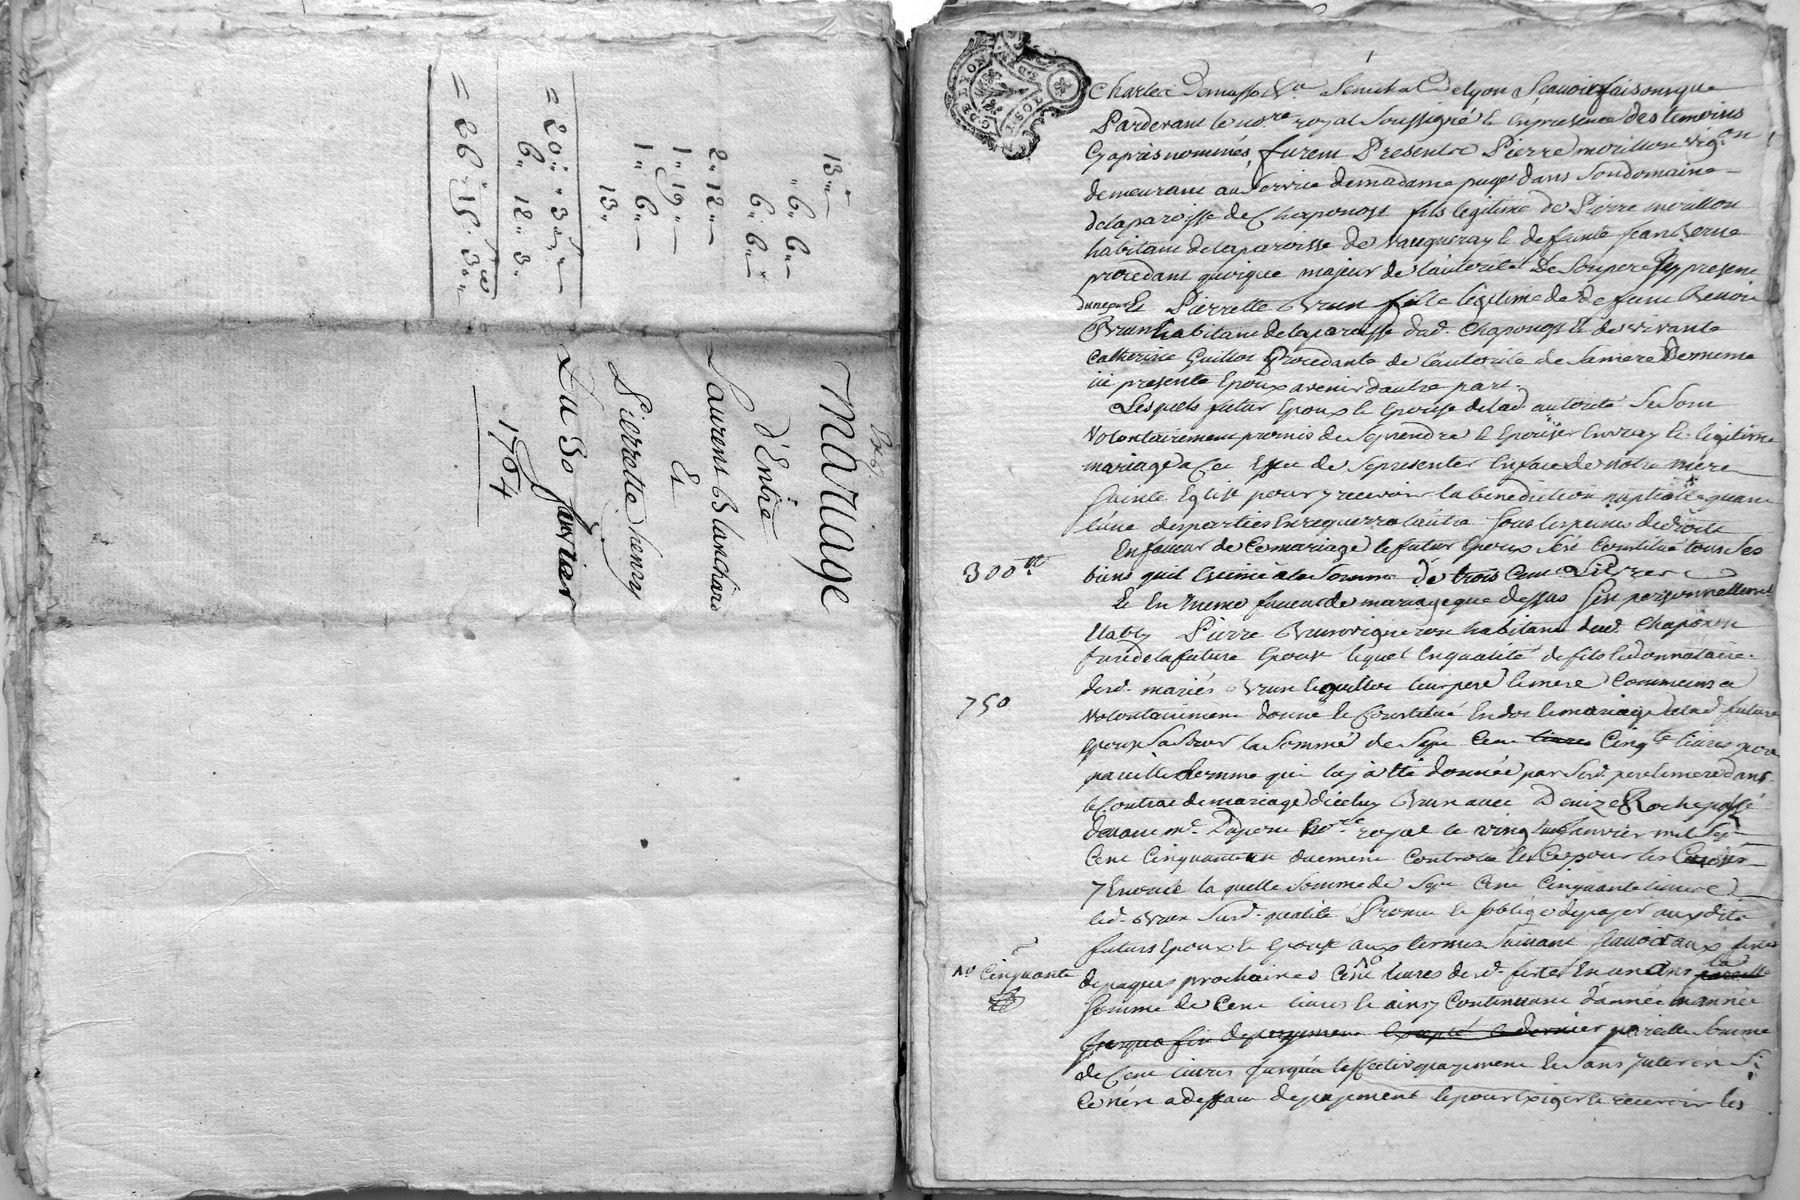 13"
" 6" 6"
6" 6"
2" 12"
1" 19"
1" 6"
13"
= 20" 3"
6" 12" 3"
= 26" 15" 3"
Exp.
Mariage
d'Entre
Laurent Blanchard
Et
Pierrette henry
Du 30 Janvier
1764
Charles Demasso &a Senechal De lyon Scavoir faisons que
Pardevant le no.re royal soussigné et en presence des temoins
Cyaprès nommes, furent Presents Pierre morillon vig.on
demeurant au Service de madame puget dans Son domaine
de la paroisse de Chaponost fils legitime de Pierre morillon
habitant de la paroisse de Vaugneray et defunte jean
procedant quoique majeur de l'autorité De Son pere icy present
d'une part Et Pierrette Brun fille legitime de defunt Benoit
Brun habitant de la paroisse dud. Chaponost et de vivante
Catherine Guillot procedante de l'autorité de Sa mere
ici presente Epoux avenir d'autre part.
Lesquels futur Epoux et Epouse de lad. autorité Se Sont
Volontairement promis de Se prendre et Epouser en vray et legitime
mariage a Cet Effet de Se presenter En face de notre mere
Sainte Eglise pour y recevoir la benediction nuptialle quant
l'une des parties En requerra l'autre Sous les peines de droit
En faveur de Ce mariage le futur Epoux S'est Constitué tous Ses
300 tt
biens qu'il Estime a la Somme de trois Cent Livres
Et En meme faveur de mariage que dessus S'est personnellement
Etably Pierre Brun vigneron habitant dud. Chaponost
frere de la future Epouse lequel En qualité de fils et donnataire
desd. mariés Brun et guillot Leur pere et mere
750
Volontairement donné et Constitué En dot et mariage a lad. future
Epouse Sa Soeur la Somme de Sept Cent Cinq.te livres pour
pareille Somme qui luy a été donnée par Sesd. pere et mere dans
le Contrat de mariage d'iceluy Brun avec Denize Roche passé
devant m.e Dapere no.re royal le vingt Janvier mil Sept
Cent Cinquante duement Controlé
y Enoncé laquelle Somme de Sept Cent Cinquante livres
led. Brun Susd. qualité Promet et S'oblige de payer auxdits
futurs Epoux et Epouse aux termes Suivant Scavoir aux fetes
Cinquante
de paques prochaines Cent livres desd. fetes En un an
Somme de Cent livres et ainsy Continuant d'année En année
jusqua fin de payement Excepté le dernier pareille Somme
de Cent livres jusqu'a l'effectif payement et Sans Interest Si
Ce n'est a deffaut de payement et pour Exiger et recevoir les